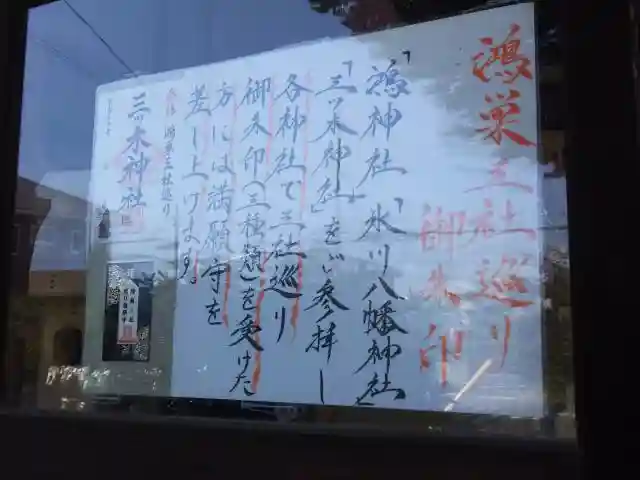 鴻巣三社巡り
御朱印
「鴻神社」「氷川八幡神社」
「三ツ木神社」をご参拝し
各神社で三社巡り
御朱印(三種類)を受けた
方には満願守を
差し上げます。
鴻巣三社巡り
三ツ木神社